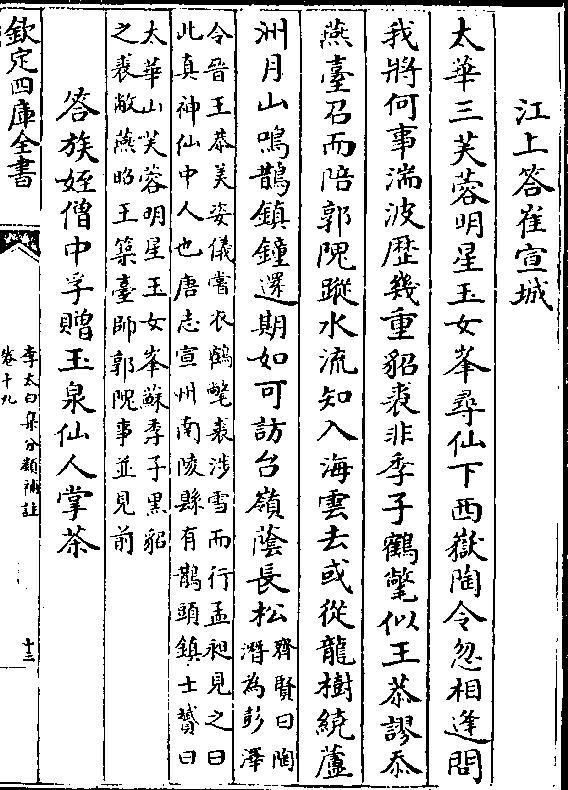 江上答崔宣城
太華三芙蓉明星玉女峯尋仙下西嶽陶令忽相逢問
我將何事湍波歷幾重貂裘非季子鶴氅似王恭謬忝
燕臺召而陪郭隗蹤水流知入海雲去或從龍樹繞蘆
洲月山鳴鵲鎮鐘還期如可訪台嶺蔭長松
齊賢曰陶
潛為彭澤
令晉王恭美姿儀嘗衣鶴氅裘涉雪而行孟昶見之曰
此真神仙中人也唐志宣州南陵縣有鵲頭鎮士贇曰
太華山芙蓉明星玉女峯蘇季子黑貂
之裘敝燕昭王築臺師郭隗事並見前
答族姪僧中孚贈玉泉仙人掌茶
欽定四庫全書
李太白集分類補註
卷十九
十三